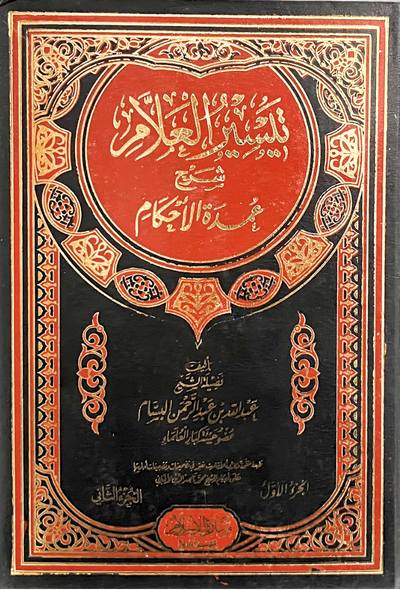 تيسير العلام
شرح
عمدة الأحكام
تأليف
فضيلة الشيخ
عبد الله بن عبد الرحمن البسام
عضو هيئة كبار العلماء
الجزء الأول
الجزء الثاني